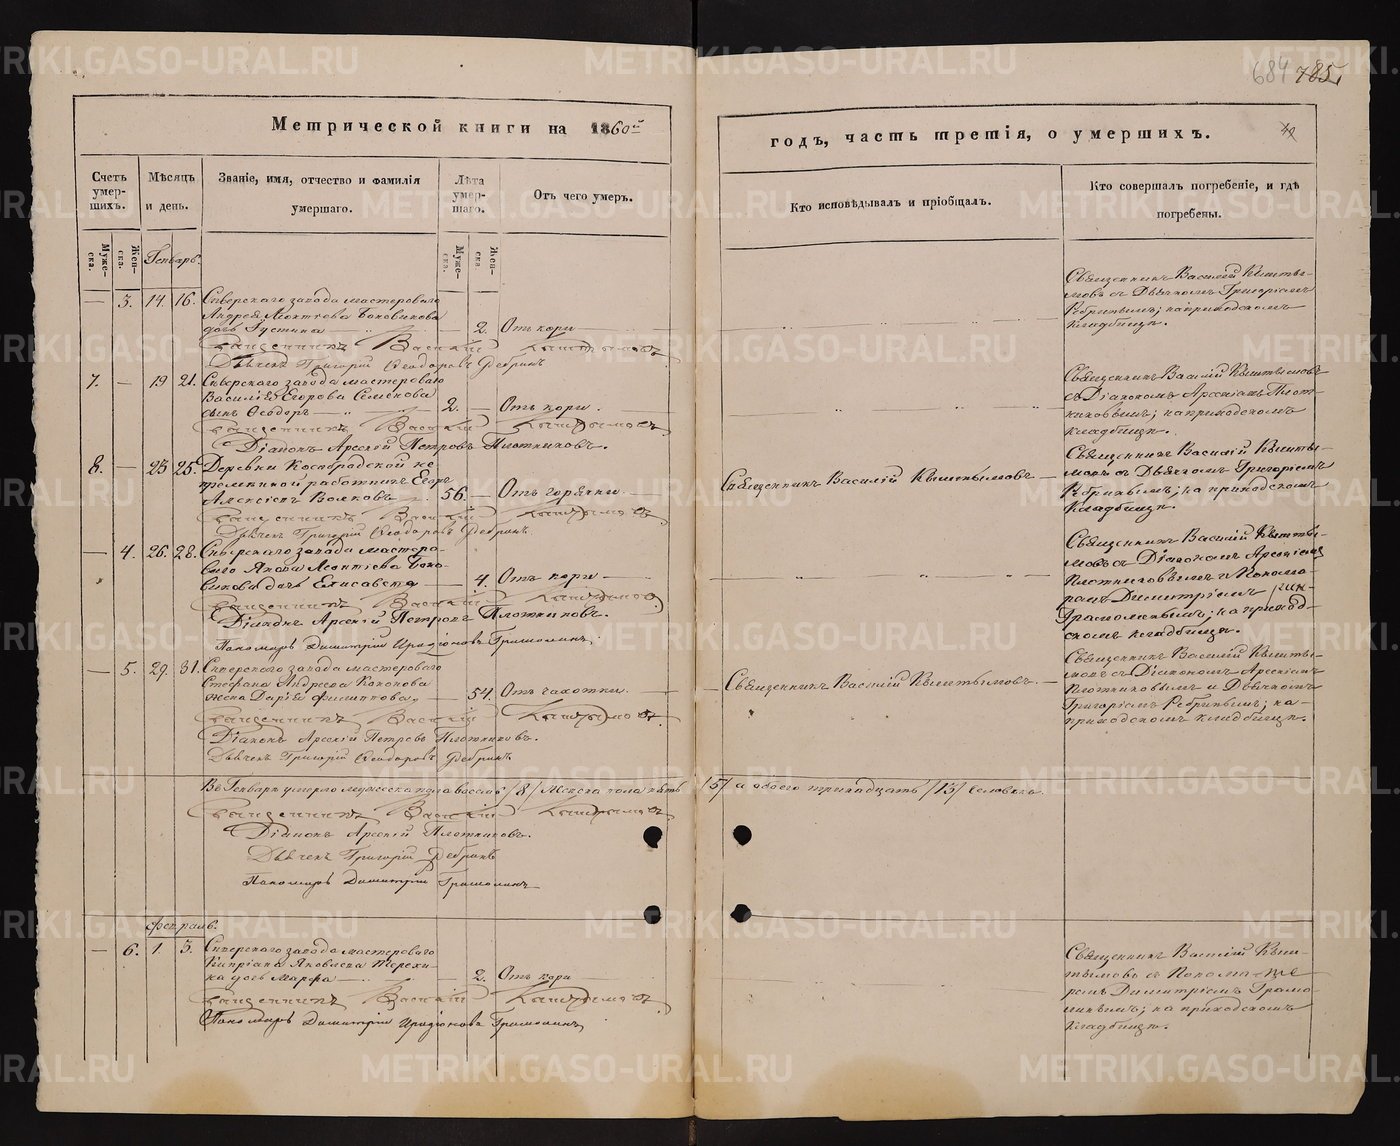 684 785.
Метрической книги на 1860й
годъ, часть третія, о умершихъ.
Счетъ умер-шихъ.
Мѣсяцъ и день.
Званіе, имя, отчество и фамилія умершаго.
Лѣта умер-шаго.
Отъ чего умеръ.
Кто исповѣдывалъ и пріобщалъ.
Кто совершалъ погребеніе, и гдѣ погребены.
Муже-ска.
Жен-ска.
Генварь.
Муже-ска.
Жен-ска.
— 3. 14. 16. Сѣверскаго завода мастероваго
Андрея Леонтьева Боковикова
дочь Густина — 2. Отъ кори
Священникъ Василій Кыштымовъ
Дьячекъ Григорій Ѳеодоровъ Ребринъ
Священникъ Василій Кышты-
мовъ съ Дьячкомъ Григоріемъ
Ребринымъ; на приходскомъ
кладбищѣ.
7. — 19 21. Сѣверскаго завода мастероваго
Василія Егорова Семенова
сынъ Ѳеодоръ — 2. — Отъ кори.
Священникъ Василій Кыштымовъ
Діаконъ Арсеній Петровъ Плотниковъ.
Священникъ Василій Кыштымовъ
съ Діакономъ Арсеніемъ Плот-
никовымъ; на приходскомъ
кладбищѣ.
8. — 23 25. Деревни Кособродской не-
премѣнной работникъ Егоръ
Алексіевъ Волковъ 56. — Отъ горячки
Священникъ Василій Кыштымовъ
Дьячекъ Григорій Ѳеодоровъ Ребринъ
Священникъ Василій Кыштымовъ
Священникъ Василій Кышты-
мовъ съ Дьячкомъ Григоріемъ
Ребринымъ; на приходскомъ
кладбищѣ.
— 4. 26. 28. Сѣверскаго завода мастеро-
ваго Якова Леонтіева Боко-
викова дочь Елисавета — 4. Отъ кори
Священникъ Василій Кыштымовъ
Діаконъ Арсеній Петровъ Плотниковъ.
Пономарь Димитрій Иродіоновъ Грамолинъ.
Священникъ Василій Кышты-
мовъ съ Діакономъ Арсеніемъ
Плотниковымъ и Понома-
ремъ Димитріемъ
Грамолинымъ; на приход-
скомъ кладбищѣ.
— 5. 29. 31. Сѣверскаго завода мастероваго
Стефана Андреева Кононова
жена Дарія Филиппова, — 54. Отъ чахотки.
Священникъ Василій Кыштымовъ
Діаконъ Арсеній Петровъ Плотниковъ.
Дьячекъ Григорій Ѳеодоровъ Ребринъ
Священникъ Василій Кыштымовъ.
Священникъ Василій Кышты-
мовъ съ Діакономъ Арсеніемъ
Плотниковымъ и Дьячкомъ
Григоріемъ Ребринымъ; на
приходскомъ кладбищѣ.
Въ Генварѣ умерло мужеска пола восемь /8/ женска пола пять /5/ а обоего тринадцать /13/ человѣкъ.
Священникъ Василій Кыштымовъ
Діаконъ Арсеній Плотниковъ.
Дьячекъ Григорій Ребринъ
Пономарь Димитрій Грамолинъ
Февраль.
— 6. 1. 3. Сѣверскаго завода мастероваго
Кипріана Яковлева Терехи-
на дочь Марѳа — 2. Отъ кори
Священникъ Василій Кыштымовъ
Пономарь Димитрій Иродіоновъ Грамолинъ
Священникъ Василій Кыш-
тымовъ съ Понома-
ремъ Димитріемъ Грамо-
линымъ; на приходскомъ
кладбищѣ.
METRIKI.GASO-URAL.RU